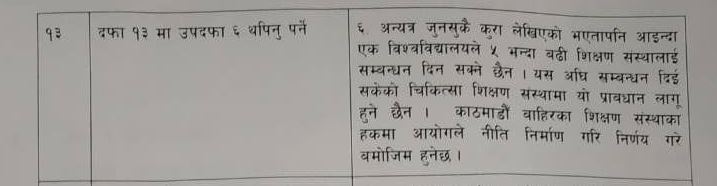 १३
दफा १३ मा उपदफा ६ थपिनु पर्ने
६. अन्यत्र जुनसुकै कुरा लेखिएको भएतापनि आइन्दा
एक विश्वविद्यालयले ५ भन्दा बढी शिक्षण संस्थालाई
सम्बन्धन दिन सक्ने छैन । यस अघि सम्बन्धन दिई
सकेको चिकित्सा शिक्षण संस्थामा यो प्रावधान लागू
हुने छैन । काठमाडौं बाहिरका शिक्षण संस्थाका
हकमा आयोगले नीति निर्माण गरि निर्णय गरे
बमोजिम हुनेछ ।